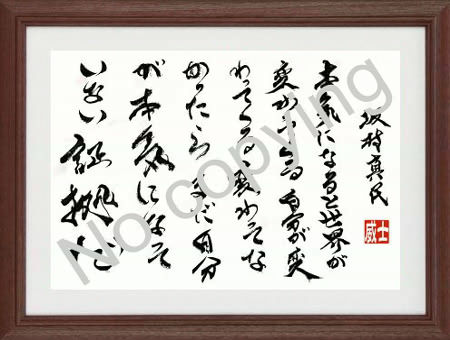 坂村真民
本気になると世界が
変わってくる自分が変
わってくる変わってな
かったらまだ自分
が本気になって
いない証拠だ
士威
No copying